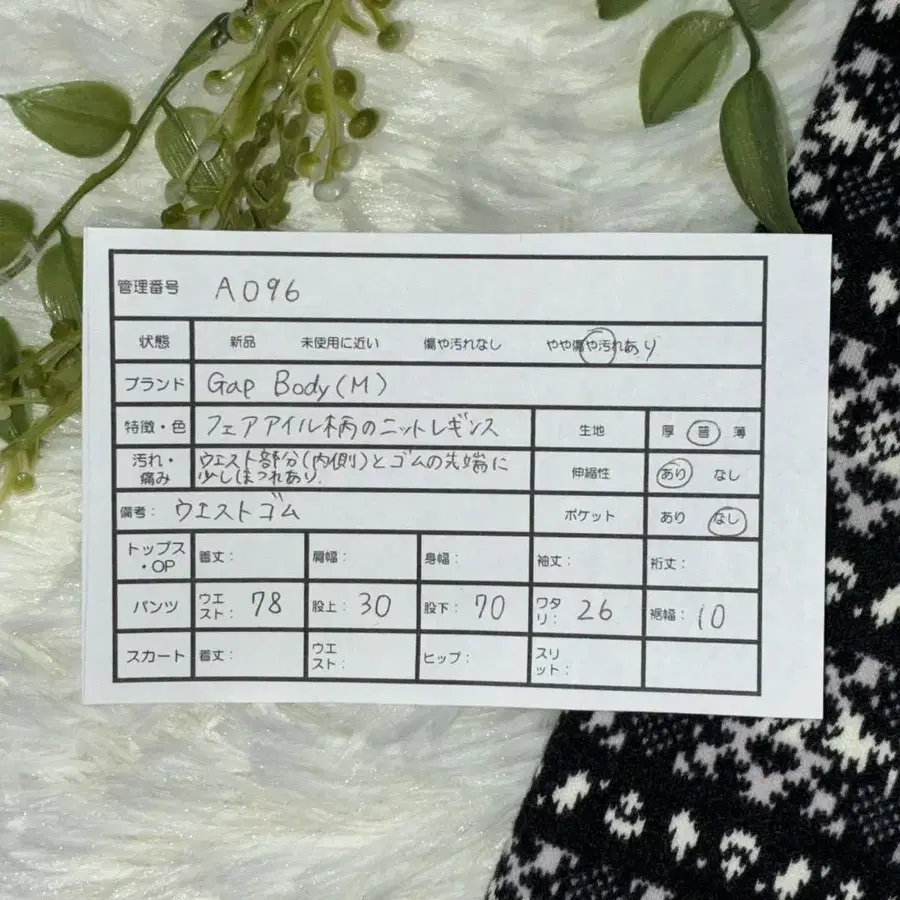 管理番号 A096
状態 新品 未使用に近い 傷や汚れなし やや傷や汚れあり
ブランド Gap Body(M)
特徴・色 フェアアイル柄のニットレギンス 生地 厚 普 薄
汚れ・痛み ウエスト部分(内側)とゴムの先端に
少しほつれあり. 伸縮性 あり なし
備考: ウエストゴム ポケット あり なし
トップス・OP 着丈: 肩幅: 身幅: 袖丈: 裄丈:
パンツ ウエスト: 78 股上: 30 股下: 70 ワタリ: 26 裾幅: 10
スカート 着丈: ウエスト: ヒップ: スリット: